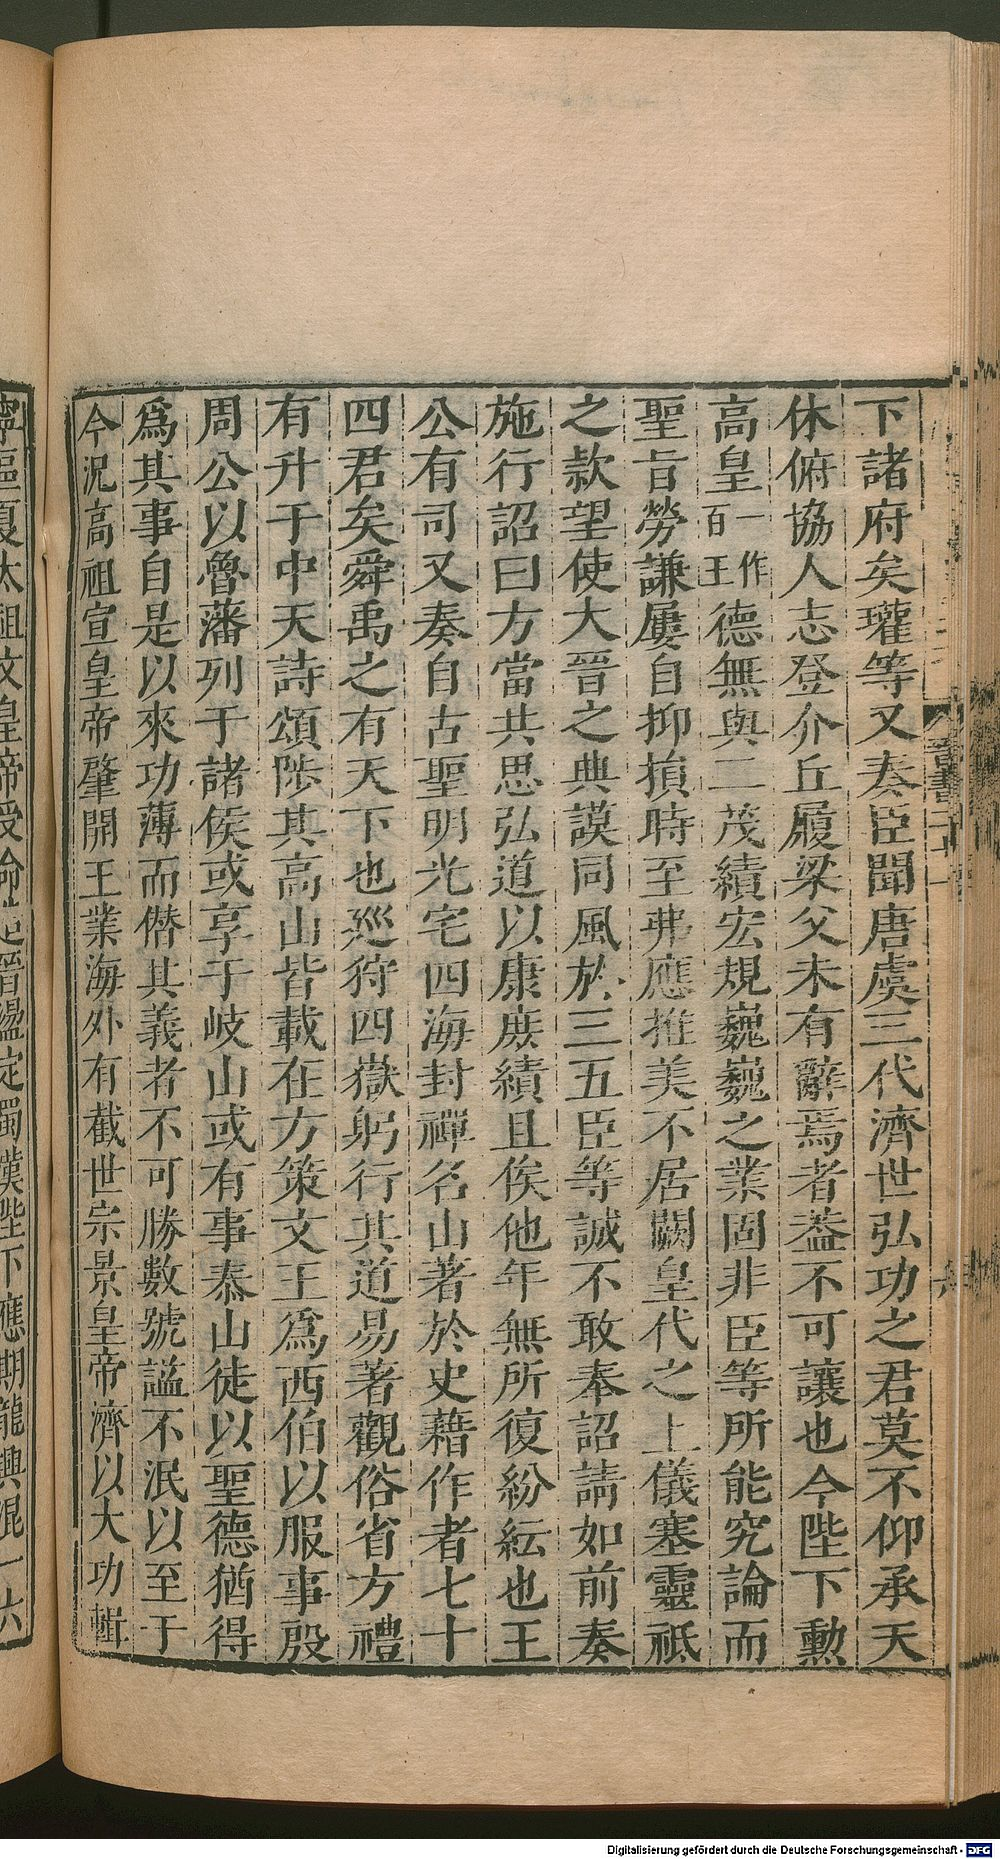 下諸府矣瓘等又奏臣聞唐虞三代濟世弘功之君莫不仰承天
休俯協人志登介丘履梁父未有辭焉者蓋不可讓也今陛下勲
高皇一作百王德無與二茂績宏規巍巍之業固非臣等所能究論而
聖旨勞謙屢自抑損時至弗應推美不居闕皇代之上儀塞靈祗
之款望使大晉之典謨同風於三五臣等誠不敢奉詔請如前奏
施行詔曰方當共思弘道以康庶績且俟他年無所復紛紜也王
公有司又奏自古聖明光宅四海封禪名山著於史藉作者七十
四君矣舜禹之有天下也巡狩四嶽躬行其道易著觀俗省方禮
有升于中天詩頌陟其高山皆載在方策文王爲西伯以服事殷
周公以魯藩列于諸侯或享于岐山或有事泰山徒以聖德猶得
爲其事自是以來功薄而僭其義者不可勝數號謚不泯以至于
今況高祖宣皇帝肇開王業海外有截世宗景皇帝濟以大功輯
寧區夏太祖文皇帝受命造晉盪定蜀漢陛下應期龍興混一六
Digitalisierung gefördert durch die Deutsche Forschungsgemeinschaft - DFG